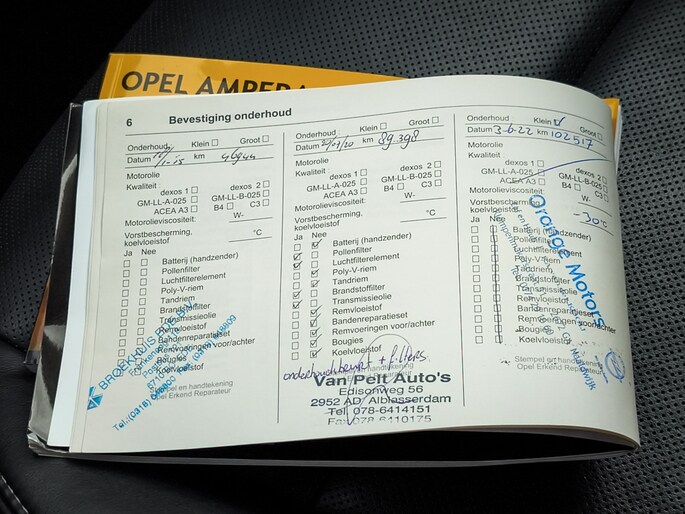 OPEL AMPERA
6 Bevestiging onderhoud
Onderhoud: Klein Groot
Datum km
Motorolie
Kwaliteit
dexos 1 dexos 2
GM-LL-A-025 GM-LL-B-025
ACEA A3 B4 C3
Motorolieviscositeit:
W-
Vorstbescherming, koelvloeistof °C
Ja Nee
Batterij (handzender)
Pollenfilter
Luchtfilterelement
Poly-V-riem
Tandriem
Brandstoffilter
Transmissieolie
Remvloeistof
Bandenreparatieset
Remvoeringen voor/achter
Bougies
Koelvloeistof
BROEKHUIS
Tel.:(0318)
Stempel en handtekening
Opel Erkend Reparateur
Onderhoud: Klein Groot
Datum km 89.398
Motorolie
Kwaliteit
dexos 1 dexos 2
GM-LL-A-025 GM-LL-B-025
ACEA A3 B4 C3
Motorolieviscositeit:
W-
Vorstbescherming, koelvloeistof °C
Ja Nee
Batterij (handzender)
Pollenfilter
Luchtfilterelement
Poly-V-riem
Tandriem
Brandstoffilter
Transmissieolie
Remvloeistof
Bandenreparatieset
Remvoeringen voor/achter
Bougies
Koelvloeistof
onderhoudsbeurt + filters
Van Pelt Auto's
Edisonweg 56
2952 AD Alblasserdam
Tel. 078-6414151
Fax 078-6410175
Onderhoud Klein Groot
Datum 3-6-22 km 102517
Motorolie
Kwaliteit
dexos 1 dexos 2
GM-LL-A-025 GM-LL-B-025
ACEA A3 B4 C3
Motorolieviscositeit:
W-
Vorstbescherming, koelvloeistof -30°C
Ja Nee
Batterij (handzender)
Pollenfilter
Luchtfilterelement
Poly-V-riem
Tandriem
Brandstoffilter
Transmissieolie
Remvloeistof
Bandenreparatieset
Remvoeringen voor/achter
Bougies
Koelvloeistof
Orange Motors
Stempel en handtekening
Opel Erkend Reparateur